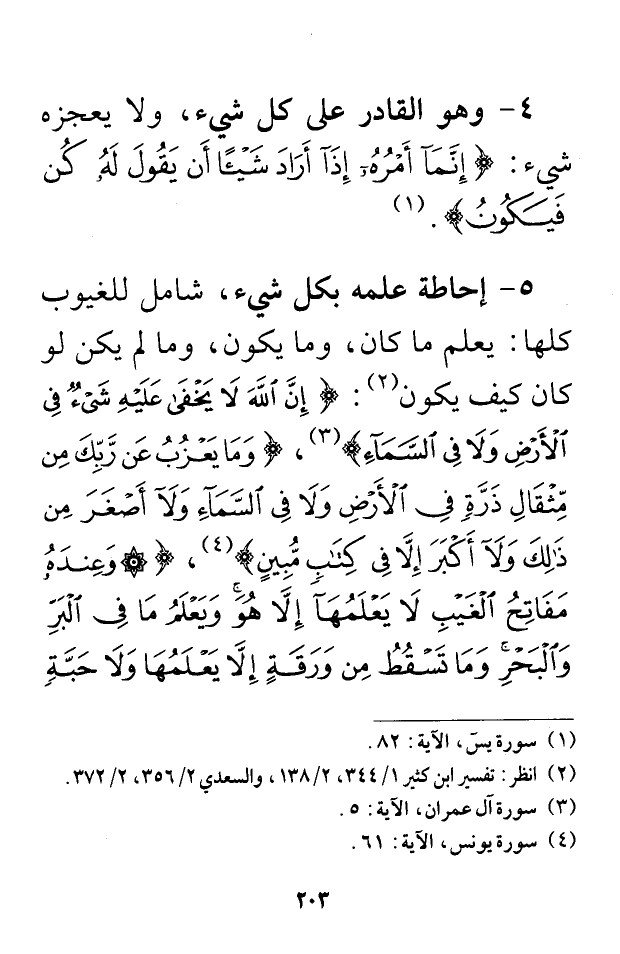 ٤- وهو القادر على كل شيء، ولا يعجزه
شيء: ﴿إِنَّمَآ أَمْرُهُۥٓ إِذَآ أَرَادَ شَيْـًٔا أَن يَقُولَ لَهُۥ كُن
فَيَكُونُ﴾(١).
٥- إحاطة علمه بكل شيء، شامل للغيوب
كلها: يعلم ما كان، وما يكون، وما لم يكن لو
كان كيف يكون(٢): ﴿إِنَّ ٱللَّهَ لَا يَخْفَىٰ عَلَيْهِ شَىْءٌ فِى
ٱلْأَرْضِ وَلَا فِى ٱلسَّمَآءِ﴾(٣)، ﴿وَمَا يَعْزُبُ عَن رَّبِّكَ مِن
مِّثْقَالِ ذَرَّةٍ فِى ٱلْأَرْضِ وَلَا فِى ٱلسَّمَآءِ وَلَآ أَصْغَرَ مِن
ذَٰلِكَ وَلَآ أَكْبَرَ إِلَّا فِى كِتَٰبٍ مُّبِينٍ﴾(٤)، ﴿۞ وَعِندَهُۥ
مَفَاتِحُ ٱلْغَيْبِ لَا يَعْلَمُهَآ إِلَّا هُوَ ۚ وَيَعْلَمُ مَا فِى ٱلْبَرِّ
وَٱلْبَحْرِ ۚ وَمَا تَسْقُطُ مِن وَرَقَةٍ إِلَّا يَعْلَمُهَا وَلَا حَبَّةٍ
(١) سورة يسٓ، الآية: ٨٢.
(٢) انظر: تفسير ابن كثير ١/ ٣٤٤، ٢/ ١٣٨، والسعدي ٢/ ٣٥٦، ٢/ ٣٧٢.
(٣) سورة آل عمران، الآية: ٥.
(٤) سورة يونس، الآية: ٦١.
٢٠٣